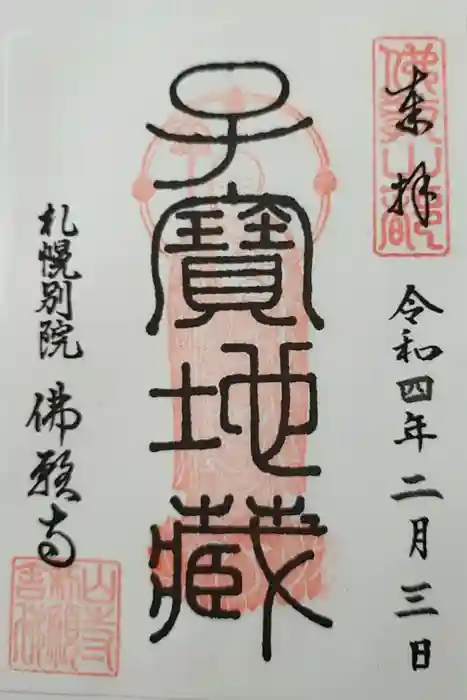 来拝
令和四年二月三日
子寶地蔵
札幌別院 佛願寺